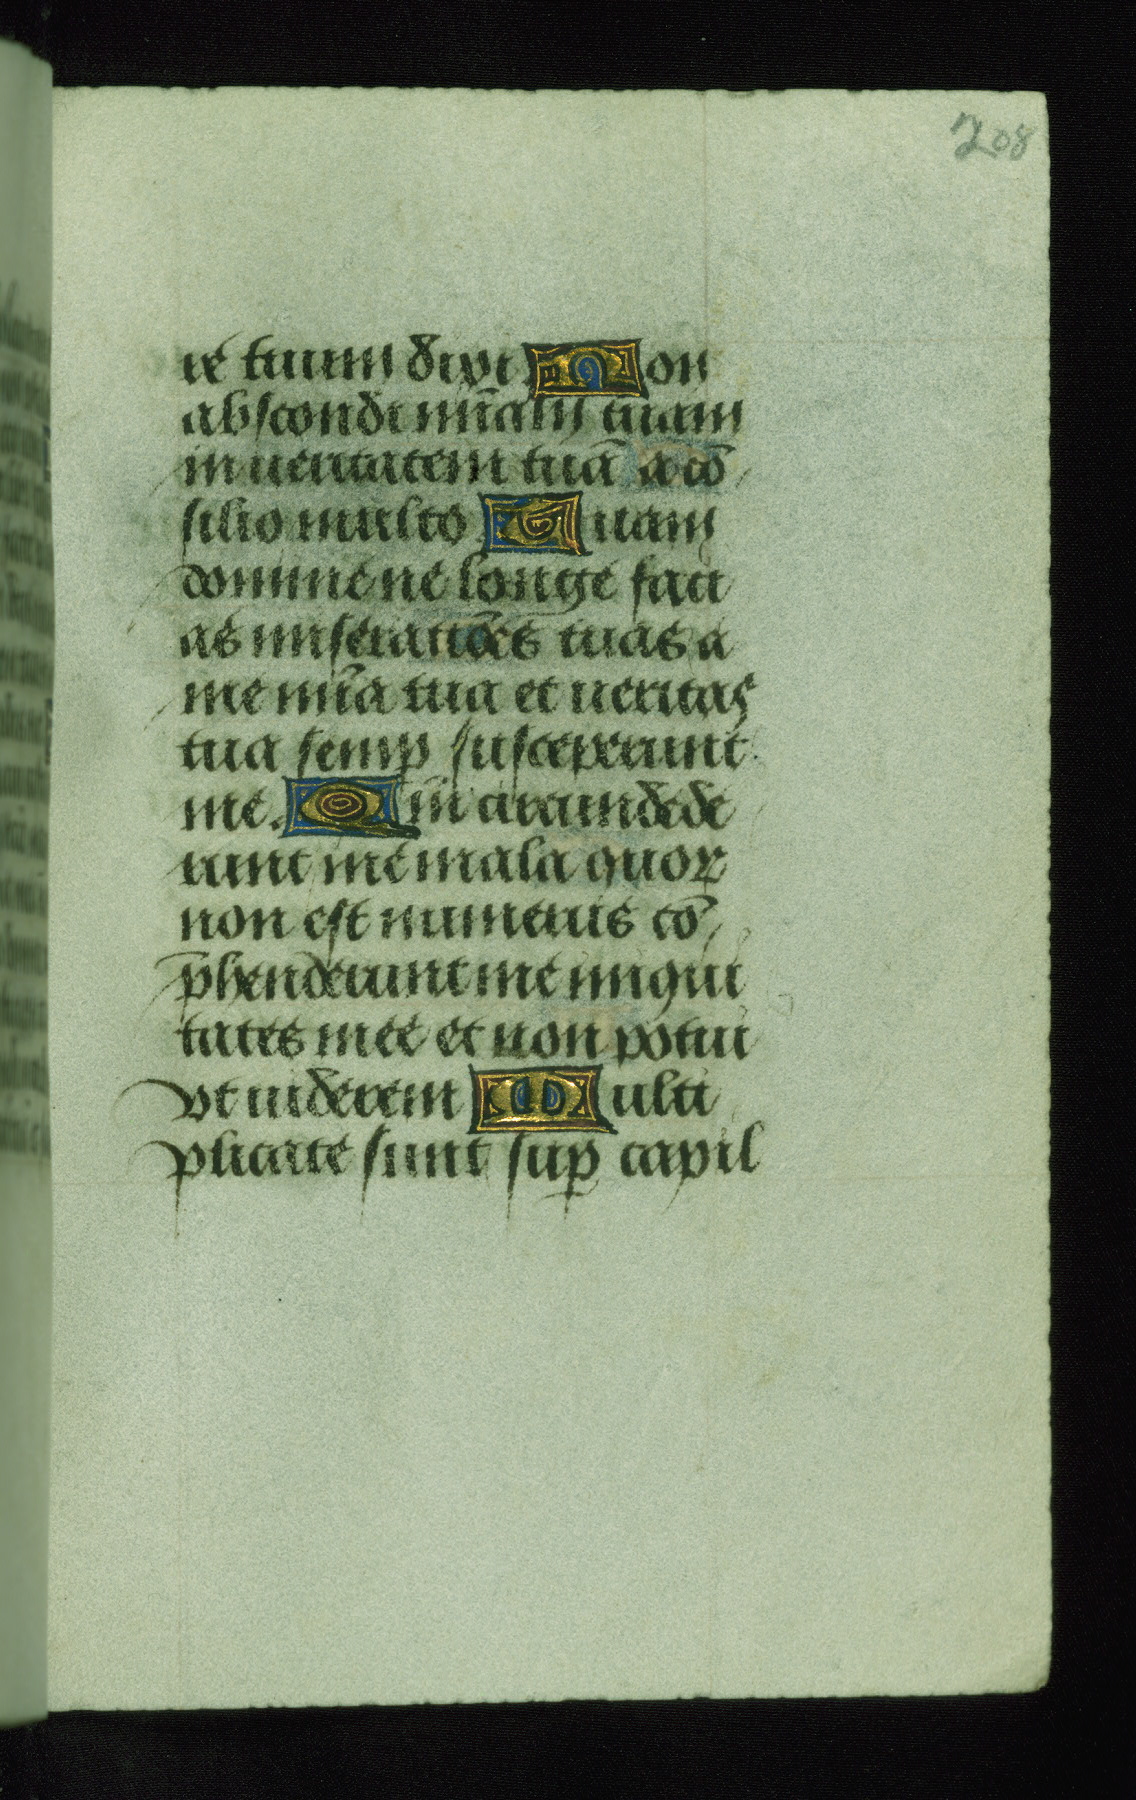 208
re tuum dixi Non
abscondi mīam tuam
in ueritatem tuā a cō
silio multo Tuam
domine ne longe faci
as miseratiōes tuas a
me mīa tua et ueritas
tua semꝑ susceperunt
me. Qm̄ circundede
runt me mala quoꝝ
non est numerus cō
p̄henderunt me iniqui
tates mee et non potui
vt uiderem Multi
plicate sunt suꝑ capil